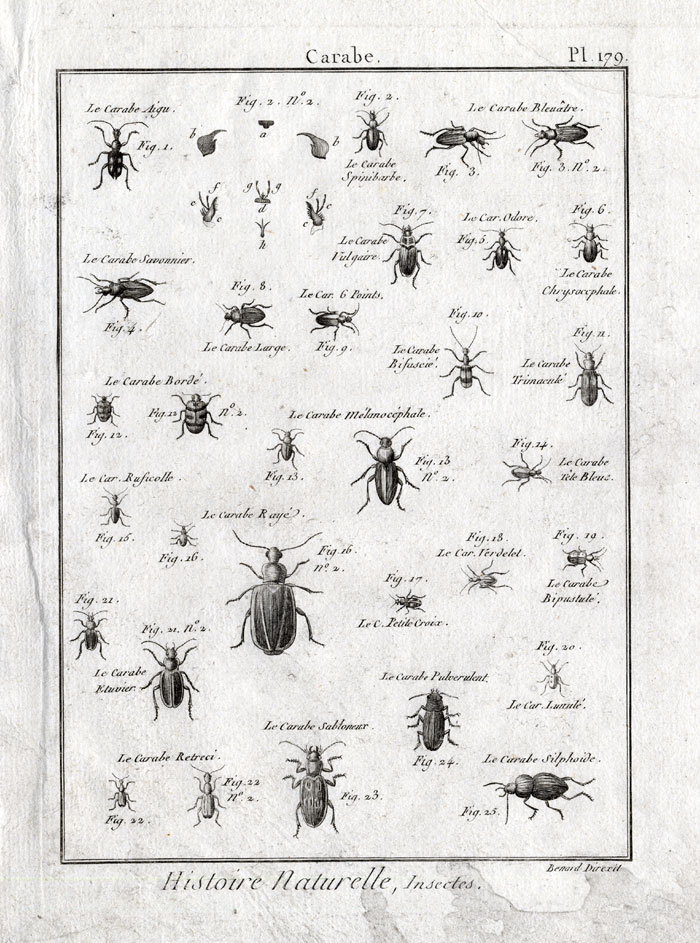 Carabe.
Pl. 179.
Le Carabe Aigu.
Fig. 1.
Fig. 2. N.º 2.
a
b
b
Fig. 2.
Le Carabe
Spinibarbe.
Le Carabe Bleuâtre.
Fig. 3.
Fig. 3. N.º 2.
e
f
c
g
g
d
h
e
f
c
Fig. 7.
Le Carabe
Vulgaire.
Le Car. Odore.
Fig. 5.
Fig. 6.
Le Carabe
Chrysocephale.
Le Carabe Savonnier.
Fig. 4.
Fig. 8.
Le Carabe Large.
Le Car. 6 Points.
Fig. 9.
Fig. 10.
Le Carabe
Bifascié.
Fig. 11.
Le Carabe
Trimaculé
Le Carabe Bordé.
Fig. 12.
Fig. 12
N.º 2.
Le Carabe Mélanocéphale.
Fig. 13.
Fig. 13
N.º 2.
Fig. 14.
Le Carabe
Tête Bleue.
Le Car. Ruficolle.
Fig. 15.
Fig. 16.
Le Carabe Rayé.
Fig. 16
n.º 2.
Fig. 17.
Le C. Petite Croix.
Fig. 18.
Le Car. Verdelet.
Fig. 19.
Le Carabe
Bipustulé.
Fig. 21.
Fig. 21. N.º 2.
Le Carabe
Etuvier.
Fig. 20.
Le Car. Lunulé.
Le Carabe Pulverulent.
Fig. 24.
Le Carabe Sabloneux.
Fig. 23.
Le Carabe Retreci.
Fig. 22.
Fig. 22
N.º 2.
Le Carabe Silphoïde.
Fig. 25.
Benard Direxit
Histoire Naturelle, Insectes.